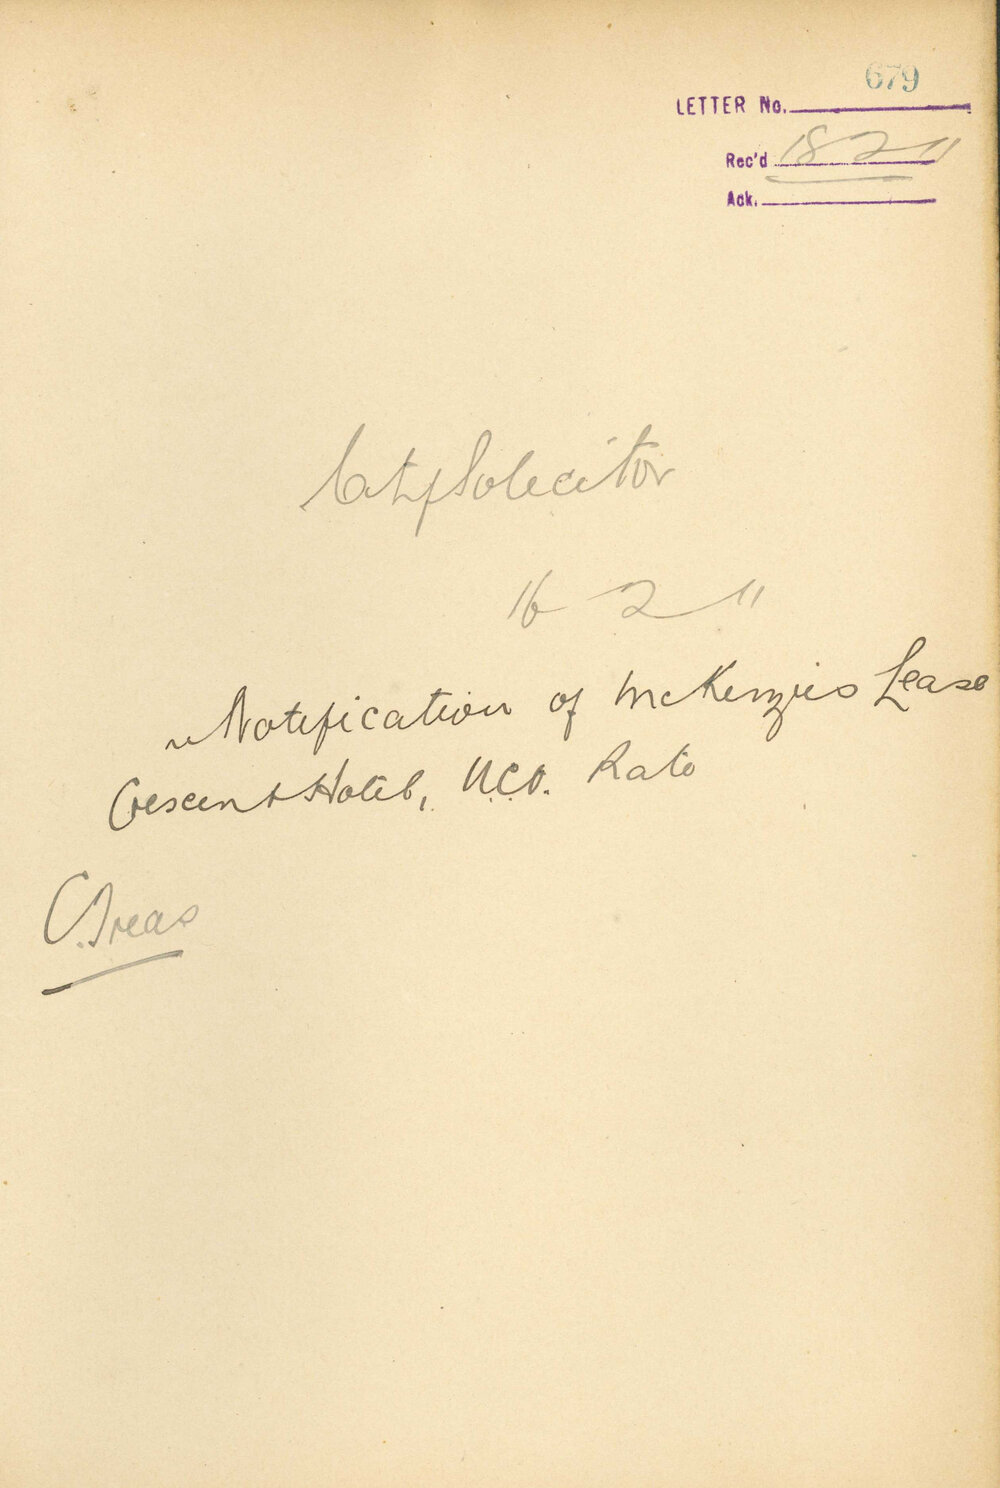 679
LETTER No.
Rec'd 18 2 11
Ack.
City Solicitor
16 2 11
Notification of McKenzies Lease
Crescent Hotel, U.C.V. Rate
C. Treas